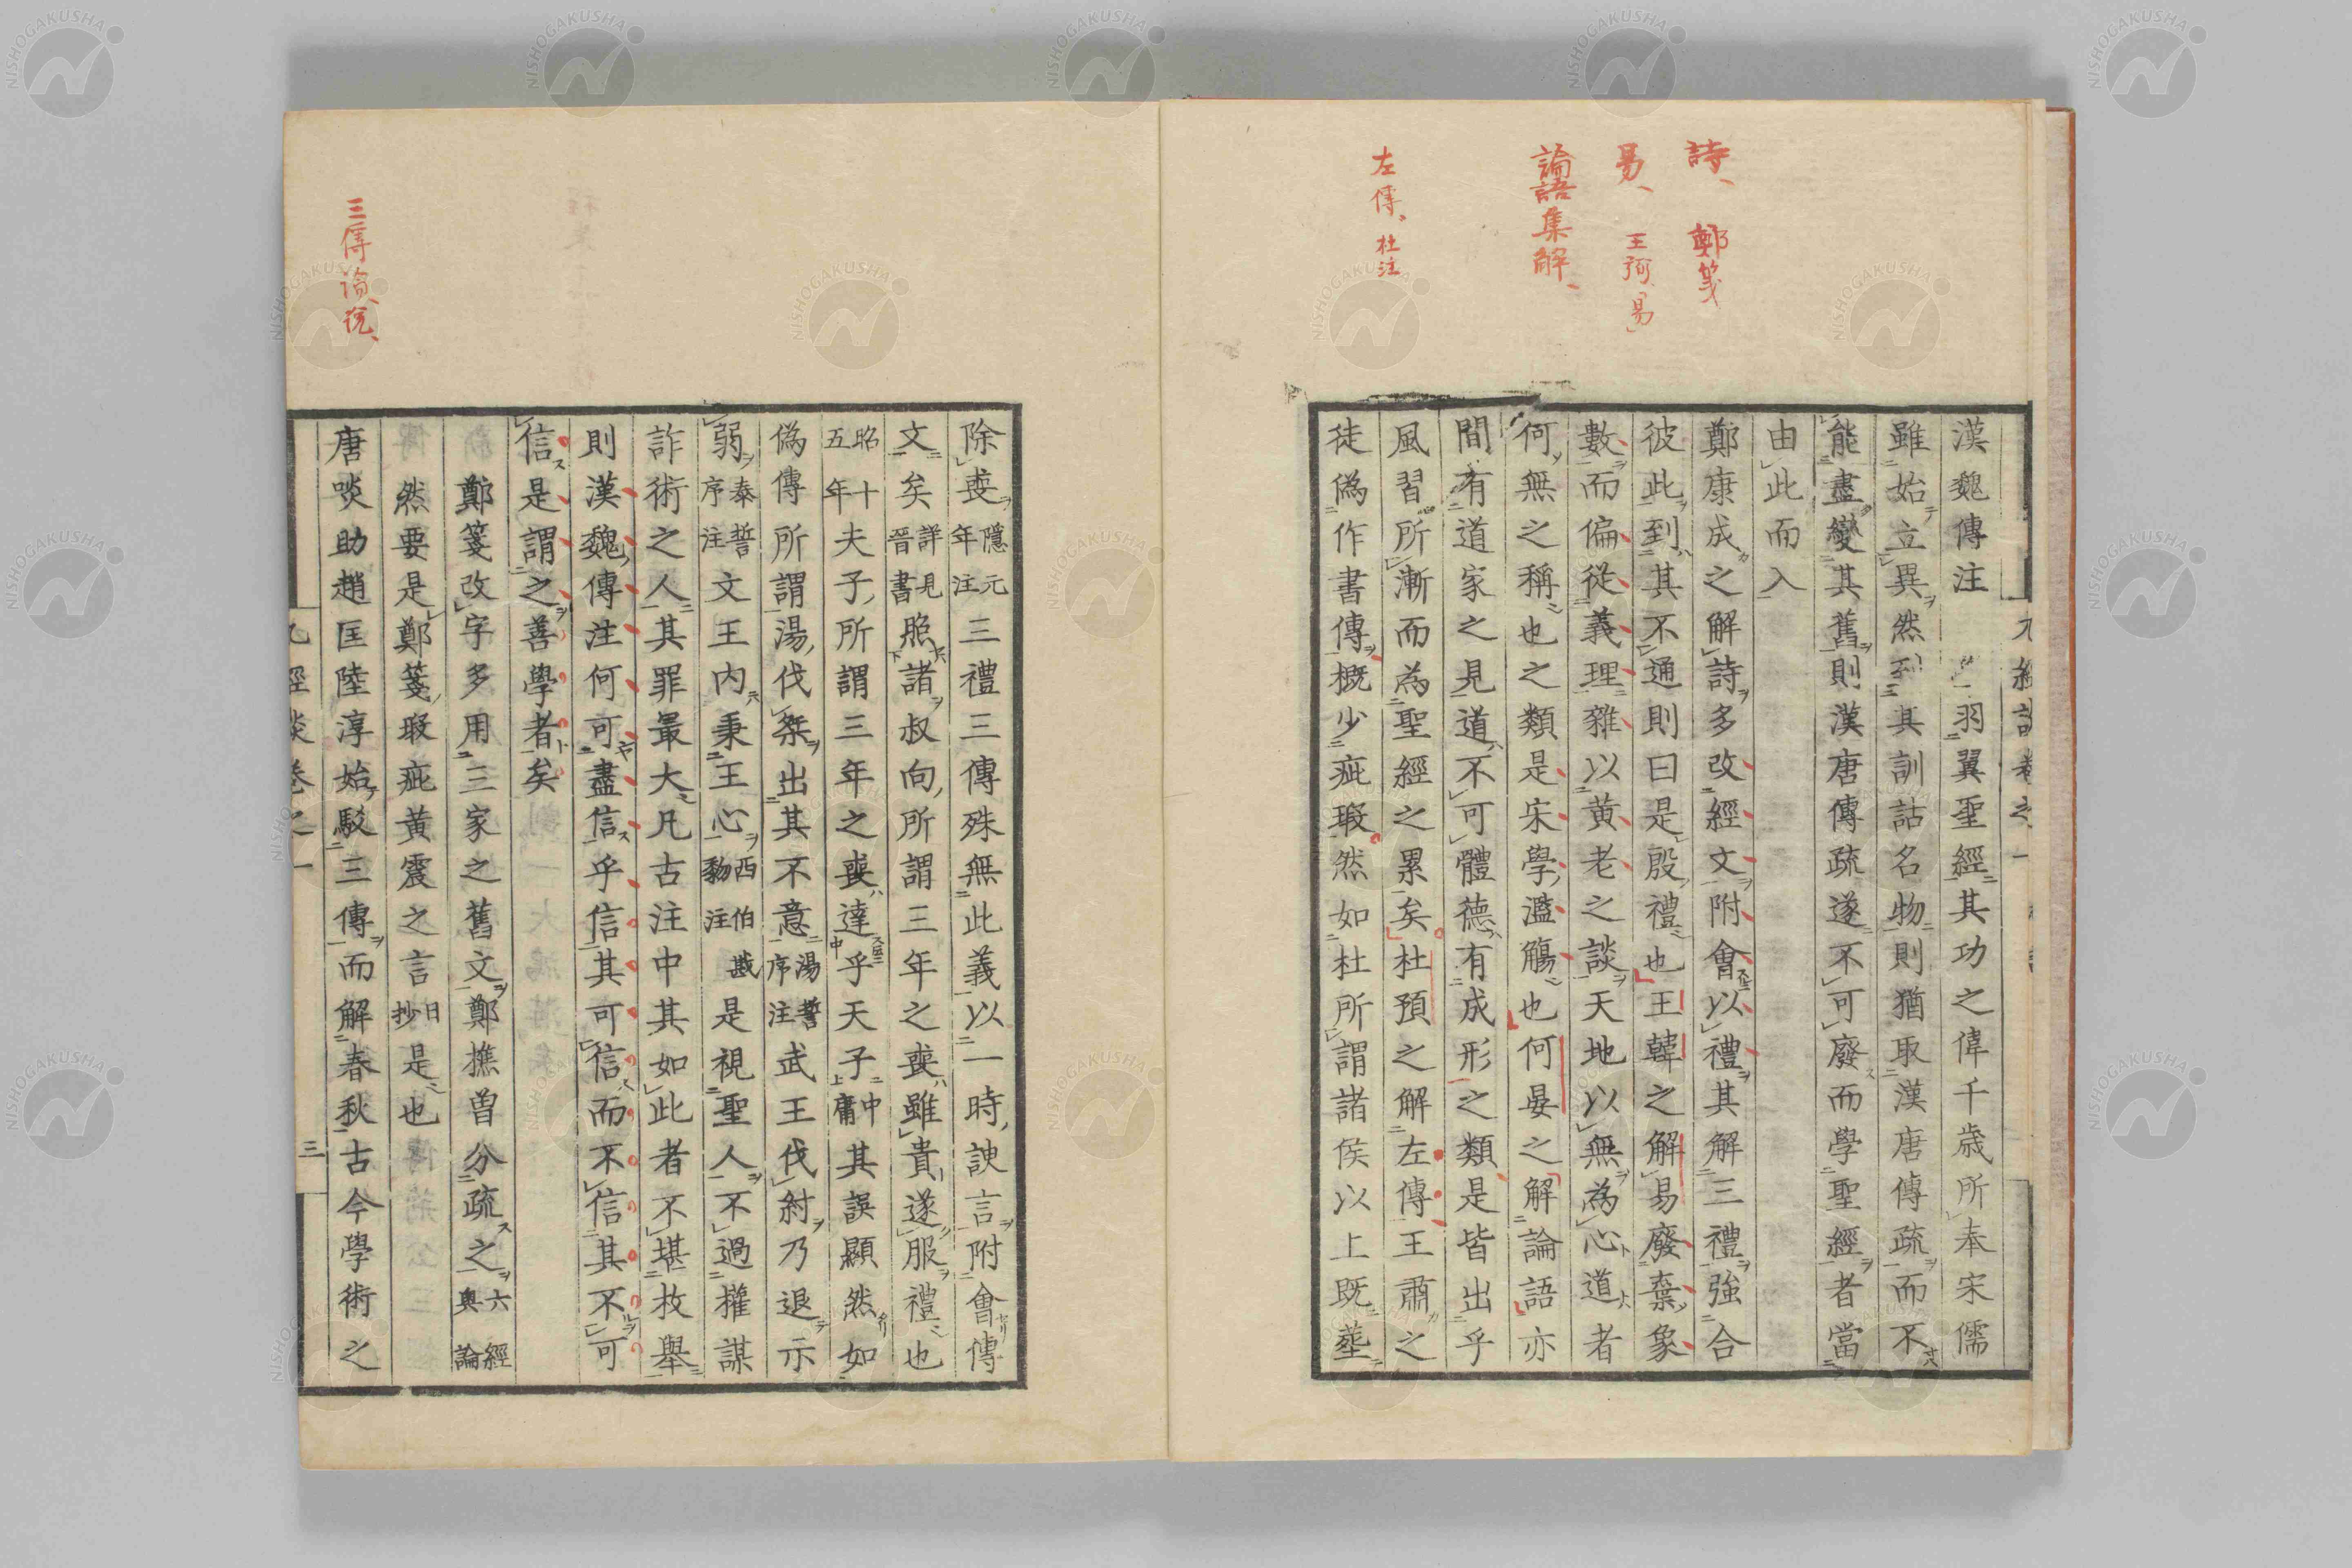 詩、鄭箋
易、王弼「易」
論語集解、
左傳、杜注
漢魏傳注羽翼聖經其功之偉千歳所奉宋儒
雖始立異然到其訓詁名物則猶取漢唐傳疏而不
能盡變其舊則漢唐傳疏遂不可廢而學聖經者當
由此而入
鄭康成之解詩多改經文附會以禮其解三禮強合
彼此到其不通則曰是殷禮也王韓之解易廢棄象
數而偏從義理雜以黄老之談天地以無為心道者
何無之稱也之類是宋學濫觴也何晏之解論語亦
間有道家之見道不可體德有成形之類是皆出乎
風習所漸而為聖經之累矣杜預之解左傳王肅之
徒偽作書傳概少疵瑕然如杜所謂諸侯以上既葬
除喪隱元年注三禮三傳殊無此義以一時諛言附會傳
文矣詳見晉書照諸叔向所謂三年之喪雖貴遂服禮也
昭十五年夫子所謂三年之喪達乎天子中庸其誤顯然如
偽傳所謂湯伐桀出其不意湯誓序注武王伐紂乃退示
弱泰誓序注文王内秉王心西伯戡黎注是視聖人不過權謀
詐術之人其罪最大凡古注中其如此者不堪枚舉
則漢魏傳注何可盡信乎信其可信而不信其不可
信是謂之善學者矣
鄭箋改字多用三家之舊文鄭樵曽分疏之六經奥論
然要是鄭箋瑕疵黄震之言日抄是也
三傳論説、
唐啖助趙匡陸淳始駁三傳而解春秋古今學術之
九經談卷之一
三